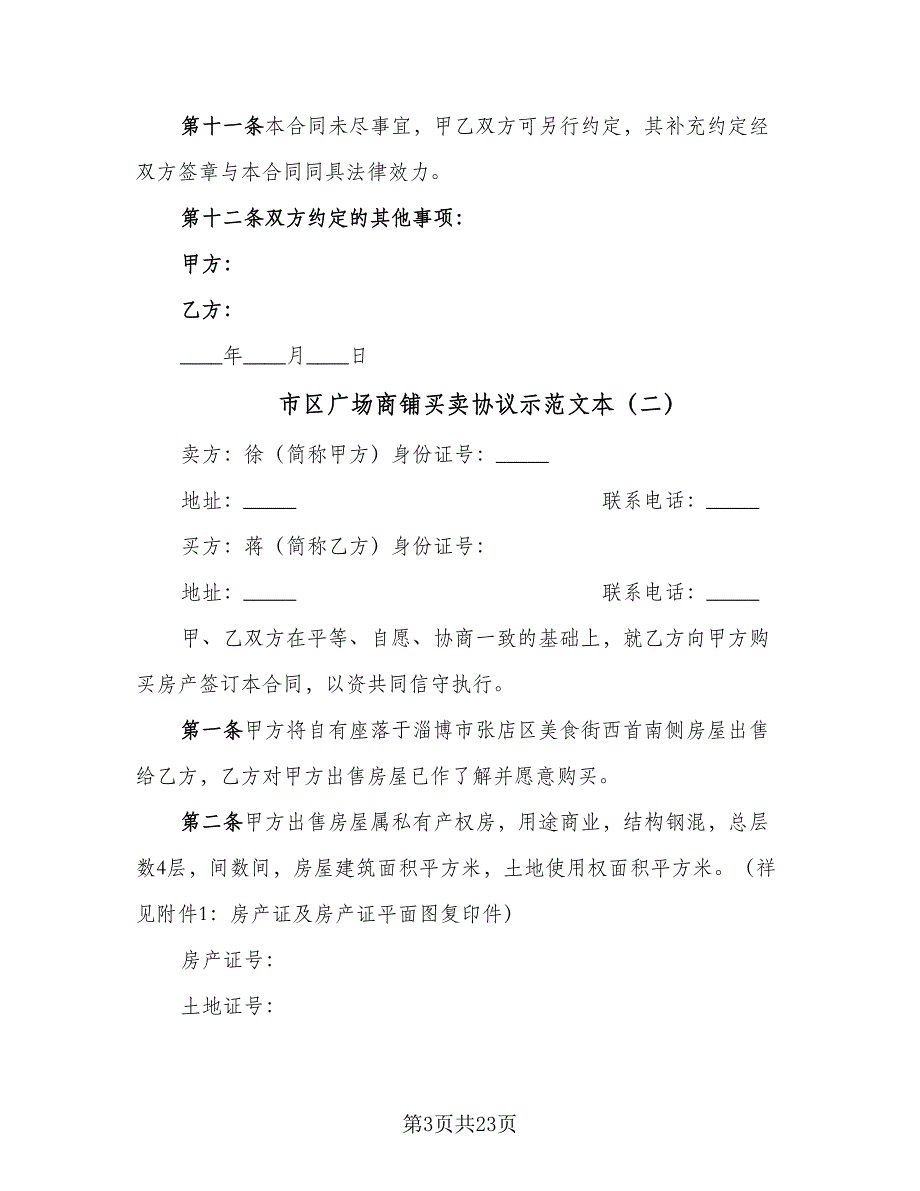 第十一条本合同未尽事宜，甲乙双方可另行约定，其补充约定经
双方签章与本合同同具法律效力。
第十二条双方约定的其他事项：
甲方：
乙方：
____年____月____日
市区广场商铺买卖协议示范文本（二）
卖方：徐（简称甲方）身份证号：_____
地址：_____ 联系电话：_____
买方：蒋（简称乙方）身份证号：
地址：_____ 联系电话：_____
甲、乙双方在平等、自愿、协商一致的基础上，就乙方向甲方购
买房产签订本合同，以资共同信守执行。
第一条甲方将自有座落于淄博市张店区美食街西首南侧房屋出售
给乙方，乙方对甲方出售房屋已作了解并愿意购买。
第二条甲方出售房屋属私有产权房，用途商业，结构钢混，总层
数4层，间数间，房屋建筑面积平方米，土地使用权面积平方米。（祥
见附件1：房产证及房产证平面图复印件）
房产证号：
土地证号：
第3页共23页